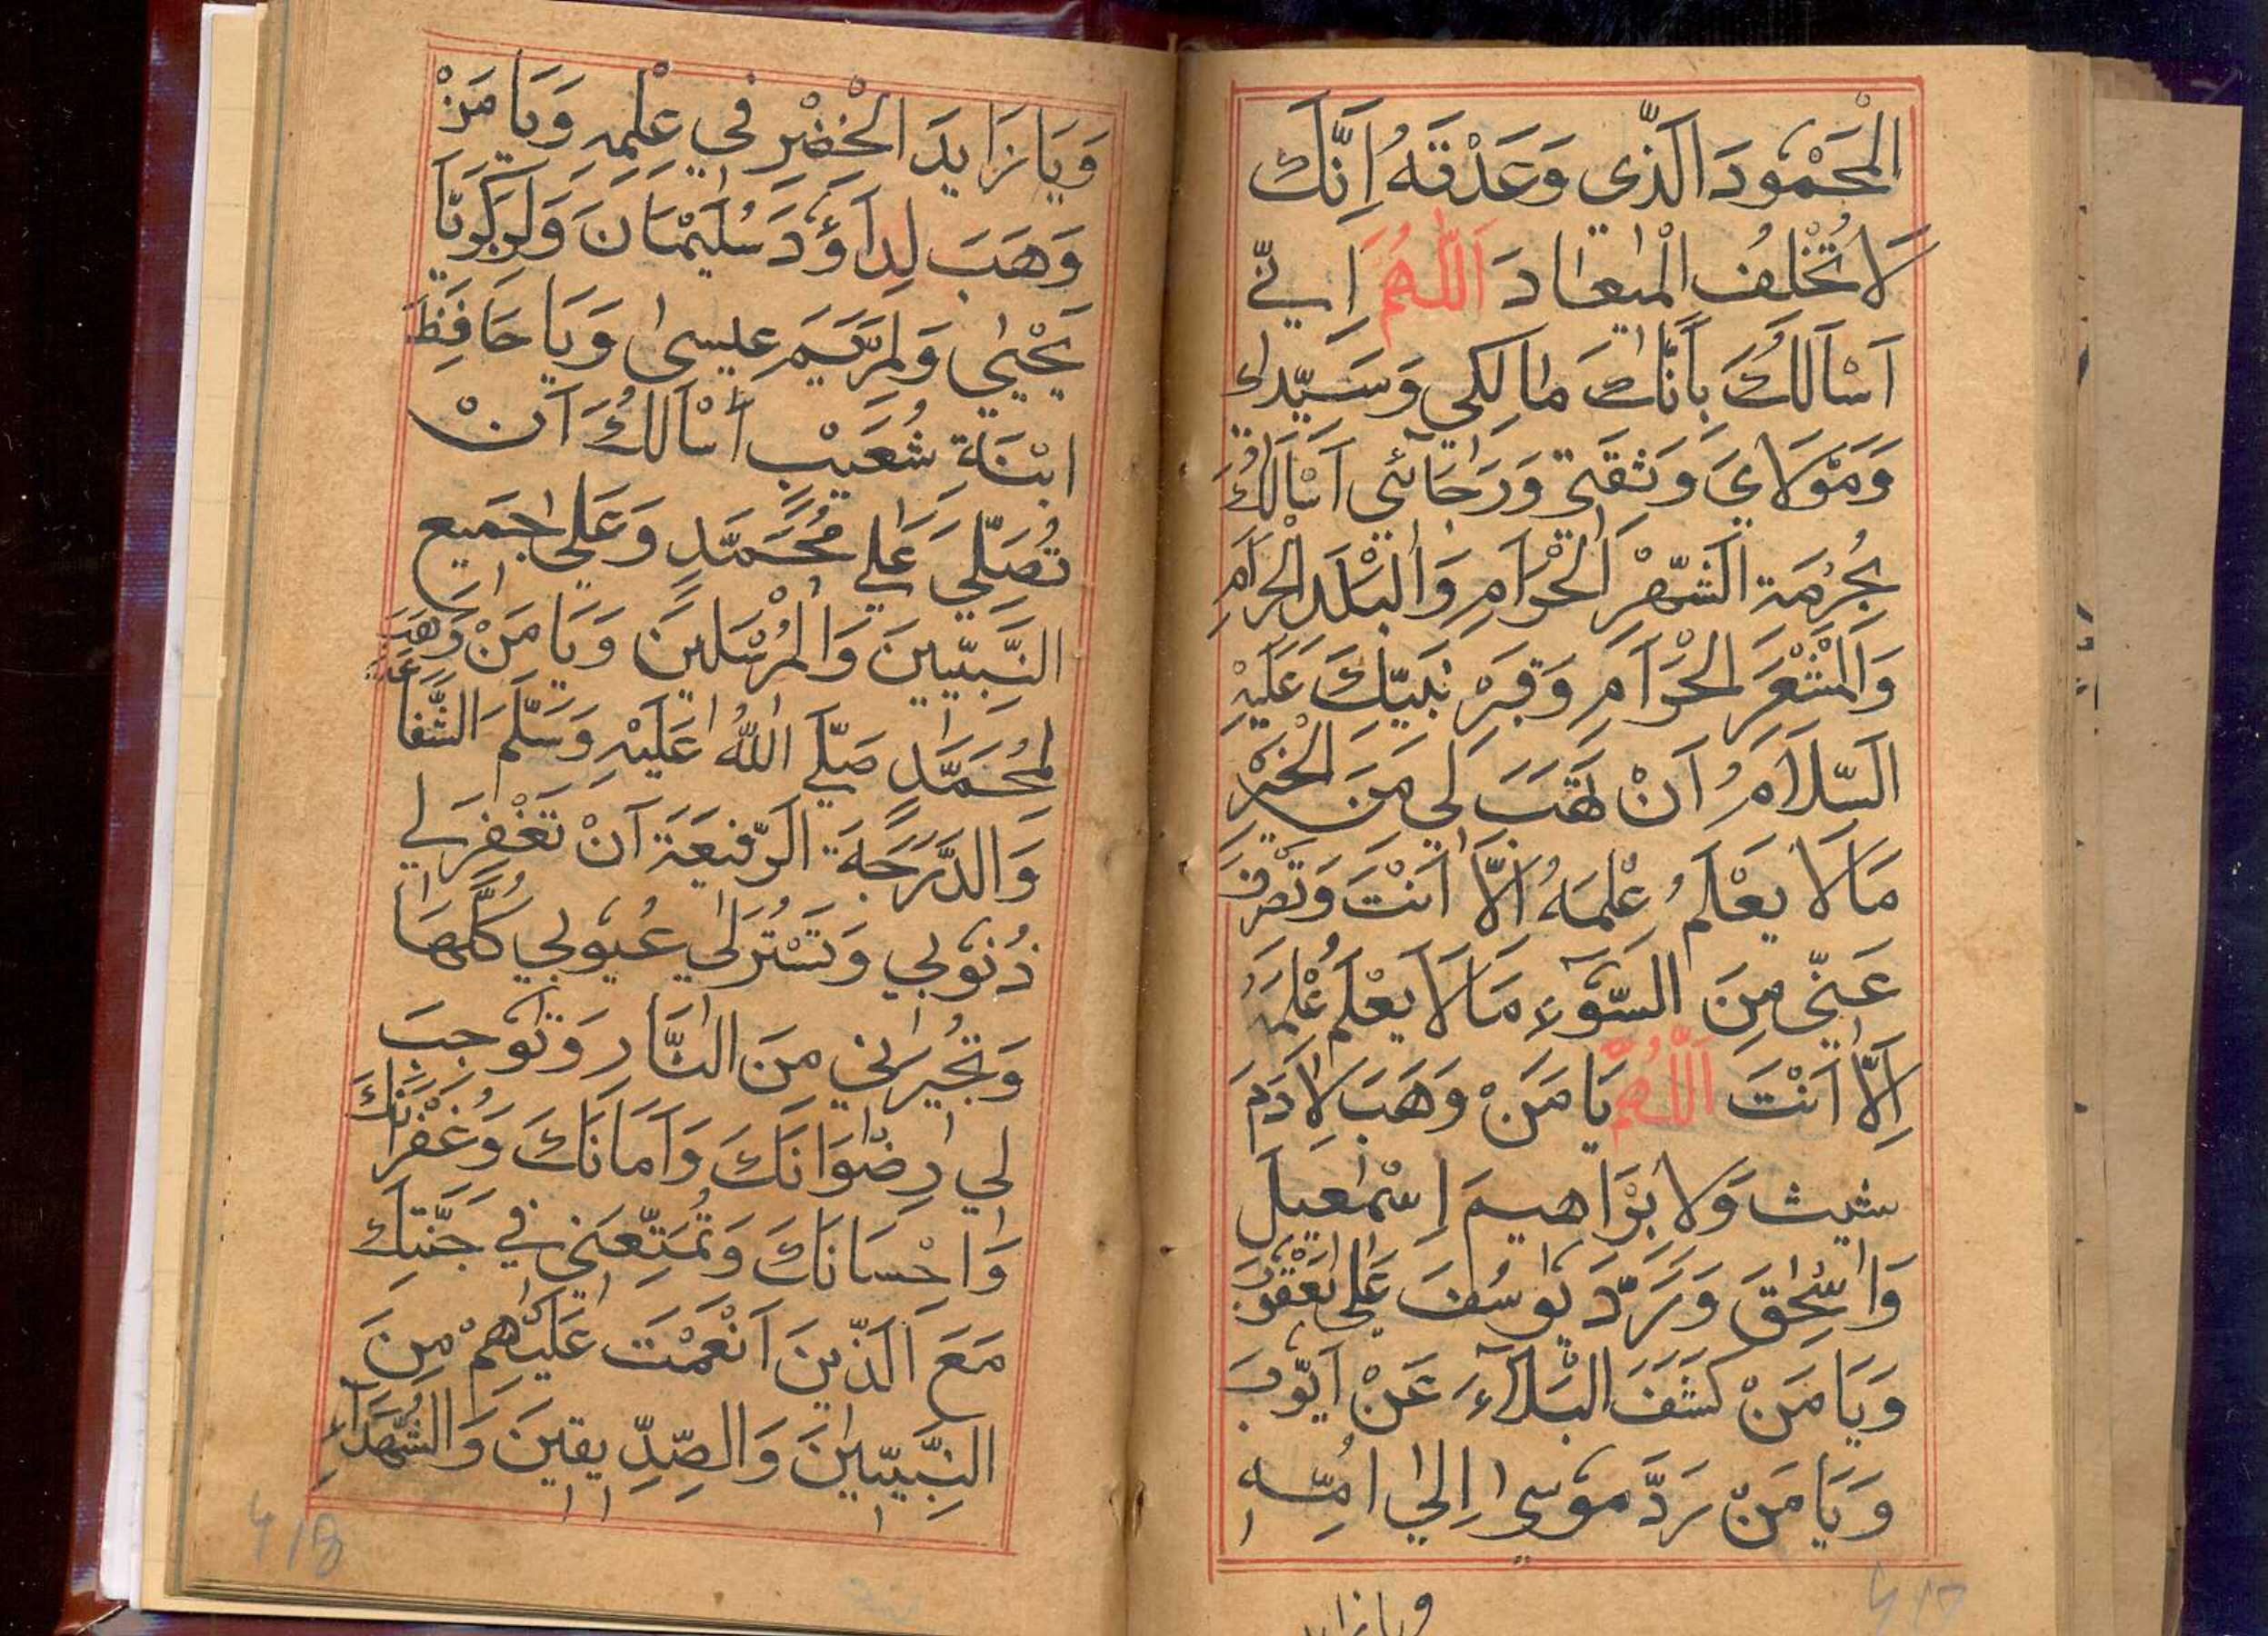 الْمَحْمُودَ الَّذِي وَعَدْتَهُ اِنَّكَ
لَا تُخْلِفُ الْمِيعَادَ اَللّٰهُمَّ اِنِّي
اَسْاَلُكَ بِاَنَّكَ مَالِكِي وَسَيِّدِي
وَمَوْلَايَ وَثِقَتِي وَرَجَائِي اَسْاَلُكَ
بِحُرْمَةِ الشَّهْرِ الْحَرَامِ وَالْبَلَدِ الْحَرَامِ
وَالْمَشْعَرِ الْحَرَامِ وَقَبْرِ نَبِيِّكَ عَلَيْهِ
السَّلَامُ اَنْ تَهَبَ لِي مِنَ الْخَيْرِ
مَالَا يَعْلَمُ عِلْمَهُ اِلَّا اَنْتَ وَتَصْرِفَ
عَنِّي مِنَ السُّوْءِ مَالَا يَعْلَمُ عِلْمَهُ
اِلَّا اَنْتَ اَللّٰهُمَّ يَا مَنْ وَهَبَ لِاٰدَمَ
شيث وَلِاِبْرَاهيمَ اِسْمٰعيلَ
وَاِسْحٰقَ وَرَدَّ يُوسُفَ عَلٰى يَعْقُوبَ
وَيَا مَنْ كَشَفَ الْبَلَآءَ عَنْ اَيُّوبَ
وَيَا مَنْ رَدَّ مُوسٰى اِلٰى اُمِّهِ
ويازايد
وَيَا زَايِدَ الْخَضِرِ في عِلْمِهِ وَيَا مَنْ
وَهَبَ لِدَاوُدَ سُلَيْمَانَ وَلِزَكَرِيَّا
يَحْيٰي وَلِمَرْيَمَ عيسىٰ وَيَا حَافِظَ
ابْنَةِ شُعَيْبٍ اَسْاَلُكَ اَنْ
تُصَلِّيَ عَلٰي مُحَمَّدٍ وَعَلٰي جَميعِ
النَّبِيّينَ وَالْمُرْسَلينَ وَيَا مَنْ وَهَبَ
لِمُحَمَّدٍ صَلَّي اللّٰهُ عَلَيْهِ وَسَلَّمَ الشَّفَاعَةَ
وَالدَّرَجَةَ الرَّفيعَةَ اَنْ تَغْفِرَ لي
ذُنُوبي وَتَسْتُرَ لي عُيُوبي كُلَّهَا
وَتُجيرَني مِنَ النَّارِ وَتُوجِبَ
لي رِضْوَانَكَ وَاَمَانَكَ وَغُفْرَانَكَ
وَاِحْسَانَكَ وَتُمَتِّعَني في جَنَّتِكَ
مَعَ الَّذينَ اَنْعَمْتَ عَلَيْهِمْ مِنَ
النَّبِيّينَ وَالصِّدّيقينَ وَالشُّهَدَآءِ